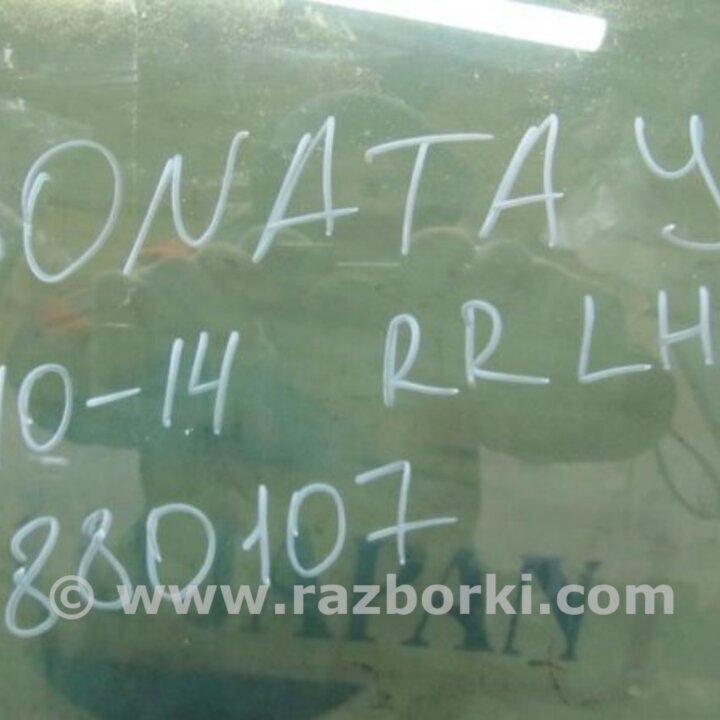 SONATA Y
10-14 RR LH
880107
JAPAN
© www.razborki.com